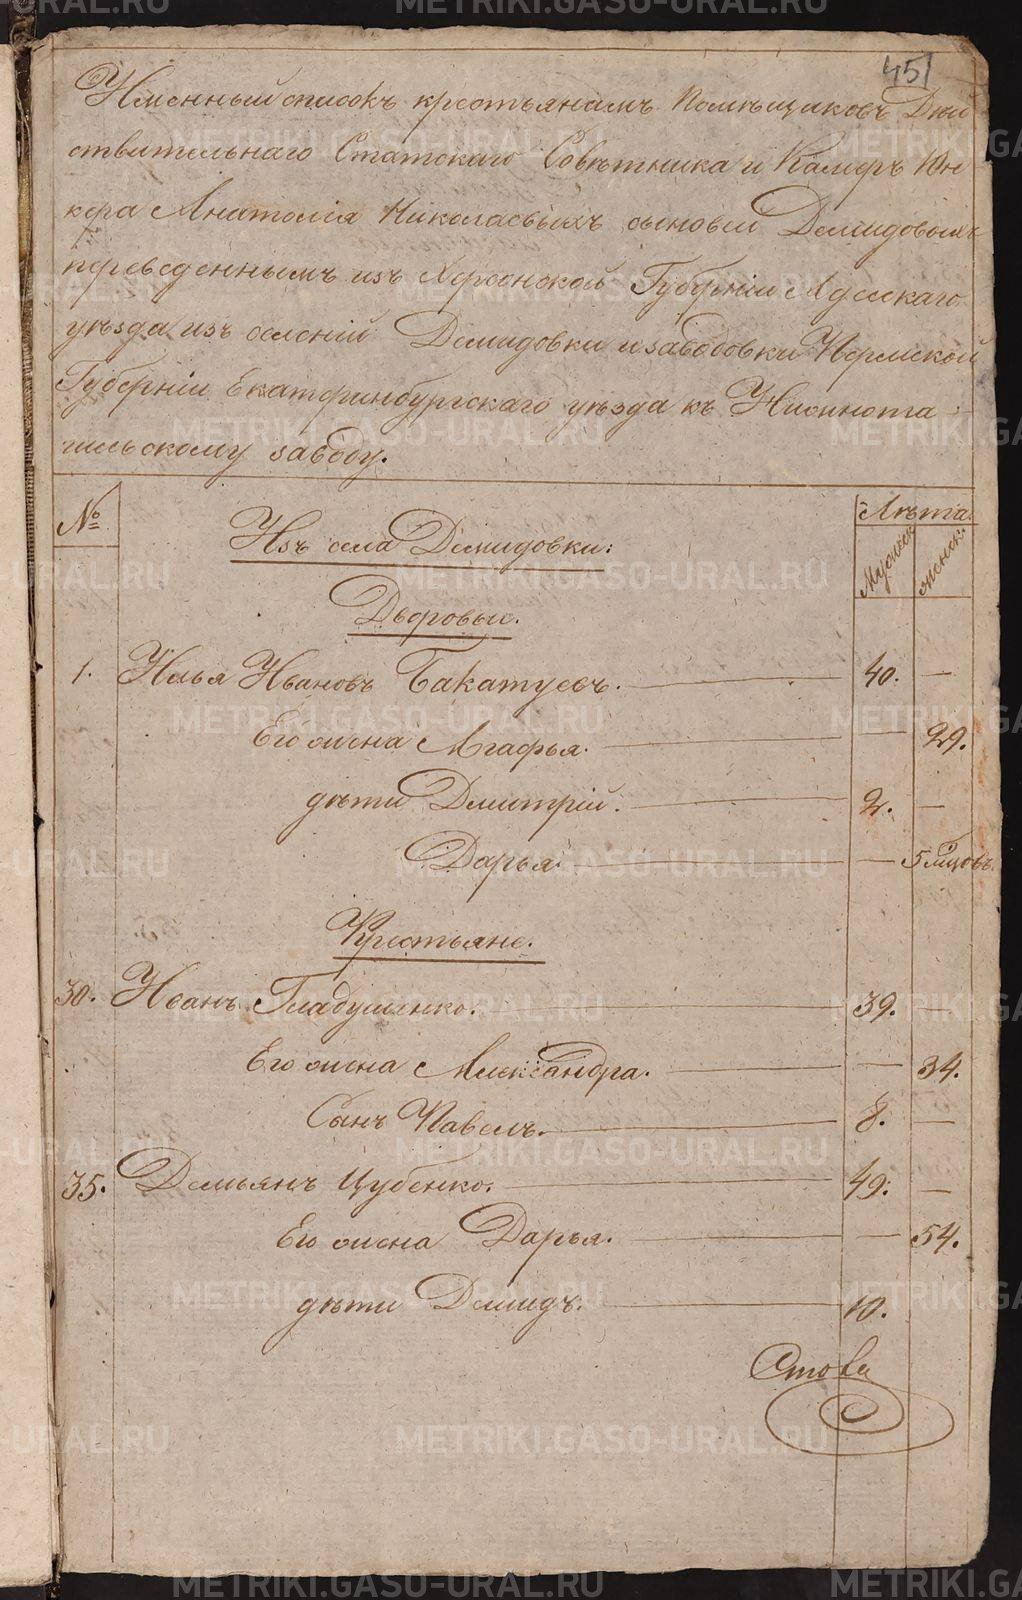 451
Именный списокъ крестьянамъ Помѣщиковъ Дѣй
ствительнаго Статскаго Совѣтника и Камеръ Юн
кера Анатолія Николаевыхъ сыновей Демидовыхъ
переведеннымъ изъ Херсонской Губерніи Адесскаго
уѣзда изъ селеній Демидовки и заводовки Пермской
Губерніи Екатеринбургскаго уѣзда къ Нижнота-
гильскому заводу.
№ Изъ села Демидовки: Лѣта
Мужеск. женск.
Дворовые.
1. Илья Ивановъ Бакатуевъ. 40. —
Его жена Агафья. — 29.
дѣти Дмитрій. 2. —
Дарья. — 5 мѣцовъ
Крестьяне.
30. Иванъ Гладушенко. 39. —
Его жена Александра. — 34.
Сынъ Павелъ. 8. —
35. Демьянъ Цубенко. 49. —
Его жена Дарья. — 54.
дѣти Демидъ. 10.
METRIKI.GASO-URAL.RU